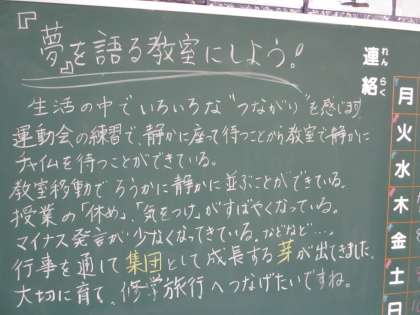 『夢を語る教室にしよう!』
生活の中でいろいろな"つながり"を感じます
運動会の練習で、静かに座って待つことから教室で静かに
チャイムを待つことができている。
教室移動でろうかに静かに並ぶことができている。
授業の「休め」、「気をつけ」がすばやくなっている。
マイナス発言が少なくなってきている。などなど…。
行事を通して集団として成長する芽が出てきました
大切に育て、修学旅行へつなげたいですね。
連絡
れんらく
月
火
水
木
金
土
日